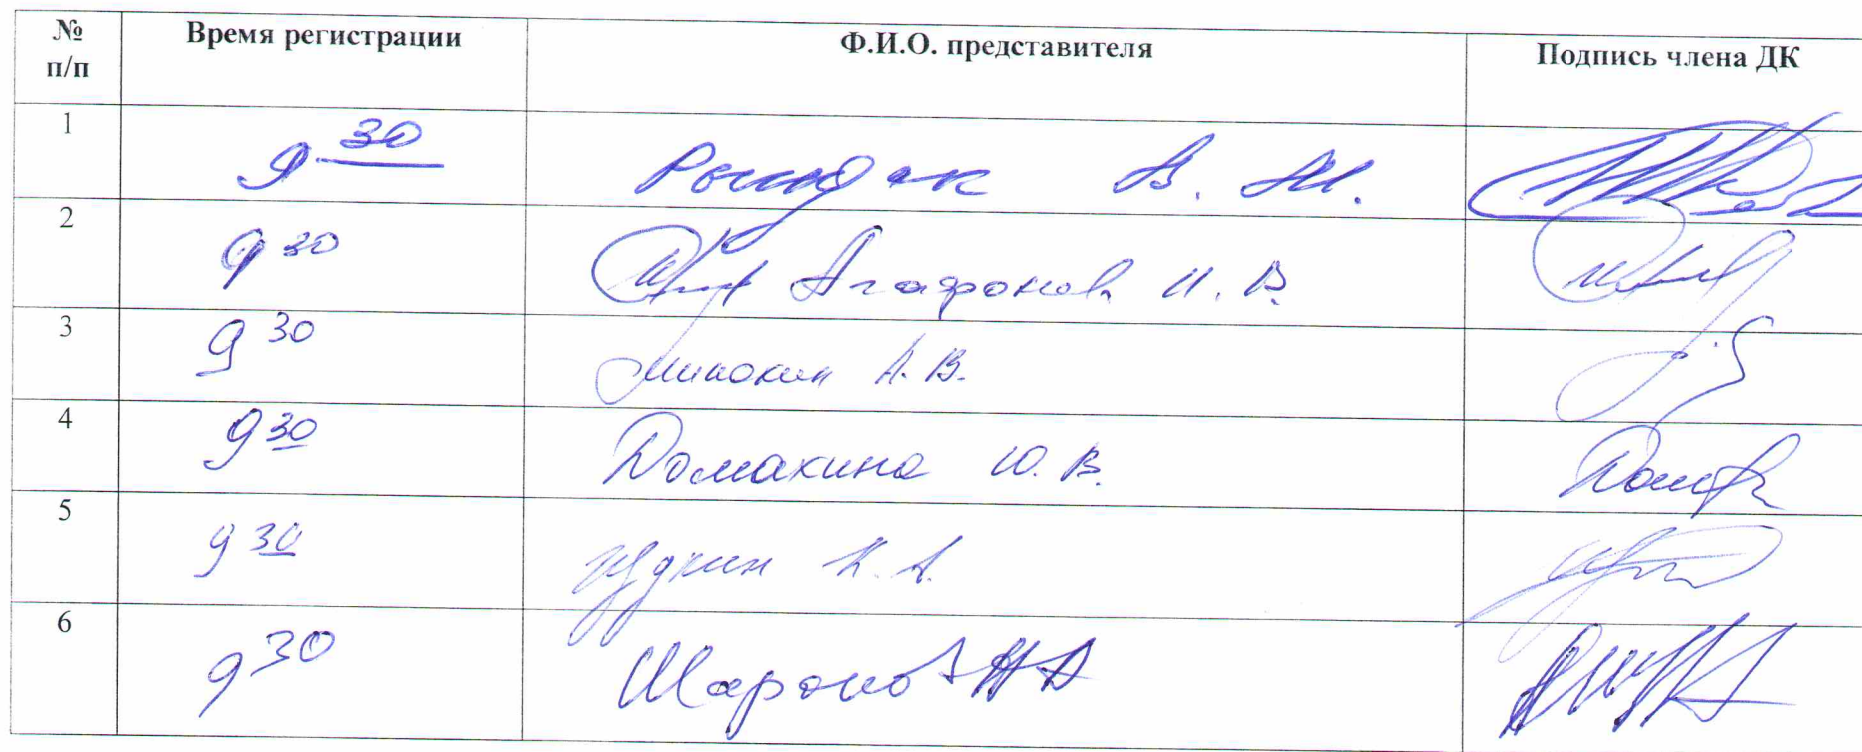 № п/п Время регистрации Ф.И.О. представителя Подпись члена ДК
1 9 30 В. М.
2 9 30 Агафонов И. В.
3 9 30 А. В.
4 9 30 Домакина Ю. В.
5 9 30 К. А.
6 9 30 Шаронов